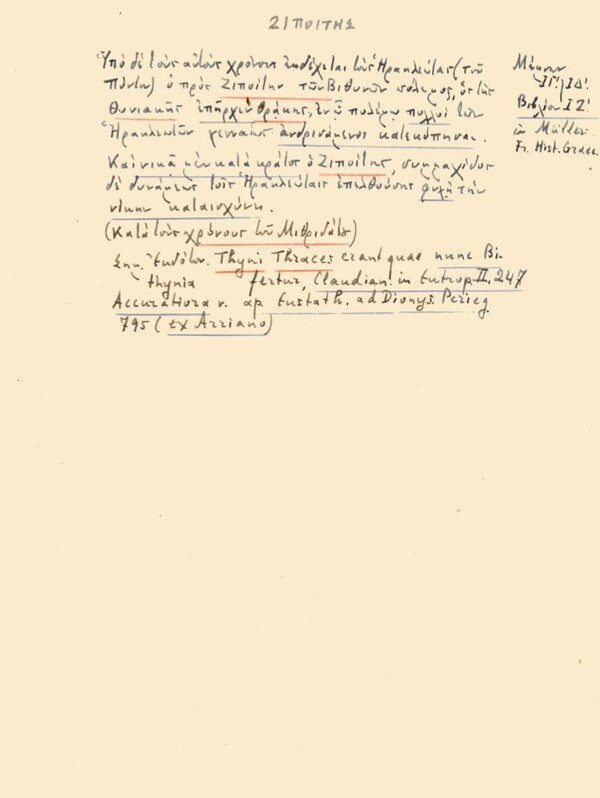 ΖΙΠΟΙΤΗΣ
Ὑπό δέ τούς αὐτούς χρόνους ἐκδέχεται τούς Ἡρακλεώτας (τοῦ
Πόντου) ὁ πρός Ζιποίτην τῶν Βιθυνῶν πόλεμος, ὅς τῆς
Θυνιακῆς ἐπῆρχεν Θράκης, ἐν ᾧ πολέμῳ πολλοί τῶν
Ἡρακλεωτῶν γενναίως ἀνδρισάμενοι κατεκόπησαν.
Καί νικᾷ μέν κατά κράτος ὁ Ζιποίτης, συμμαχίδος
δέ δυνάμεως τοῖς Ἡρακλεώταις ἐπελθούσης φυγῇ τήν
νίκην καταισχύνει.
(Κατά τούς χρόνους τοῦ Μιθριδάτου)
Thyni Thraces erant quae nunc Bi-
thynia fertur, Claudian. in Eutrop II, 247
Accuratiora v. ap Eustath. ad Dionys. Perieg.
795 (ex Arriano)
Μέμνων
ΙΓ'/ΙΔ'
Βιβλίον ΙΖ'
in Müller
Fr. Hist. Graec.